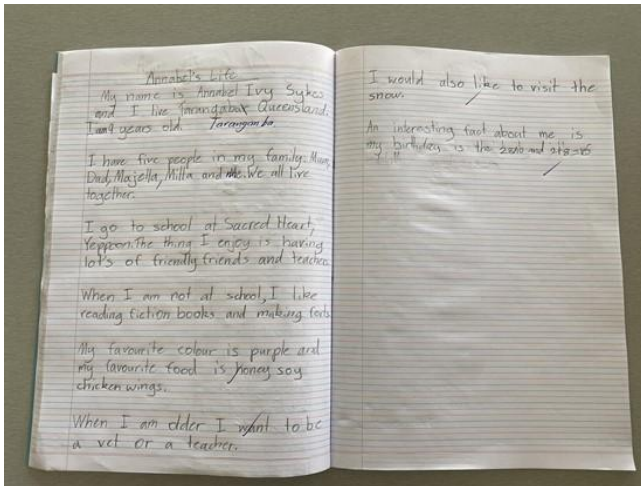 Annabel's Life
My name is Annabel Ivy Sykes
and I live Tarangabax Queensland.
I am years old. Taranganba.
I have five people in my family. Mum,
Dad, Majella, Milla and Me. We all live
together.
I go to school at Sacred Heart,
Yeppoon. The thing I enjoy is having
lot's of friendly friends and teachers.
When I am not at school, I like
reading fiction books and making forts.
My favourite colour is purple and
my favourite food is honey soy
chicken wings.
When I am older I want to be
a vet or a teacher.
I would also like to visit the
snow.
An interesting fact about me is
my birthday is the and